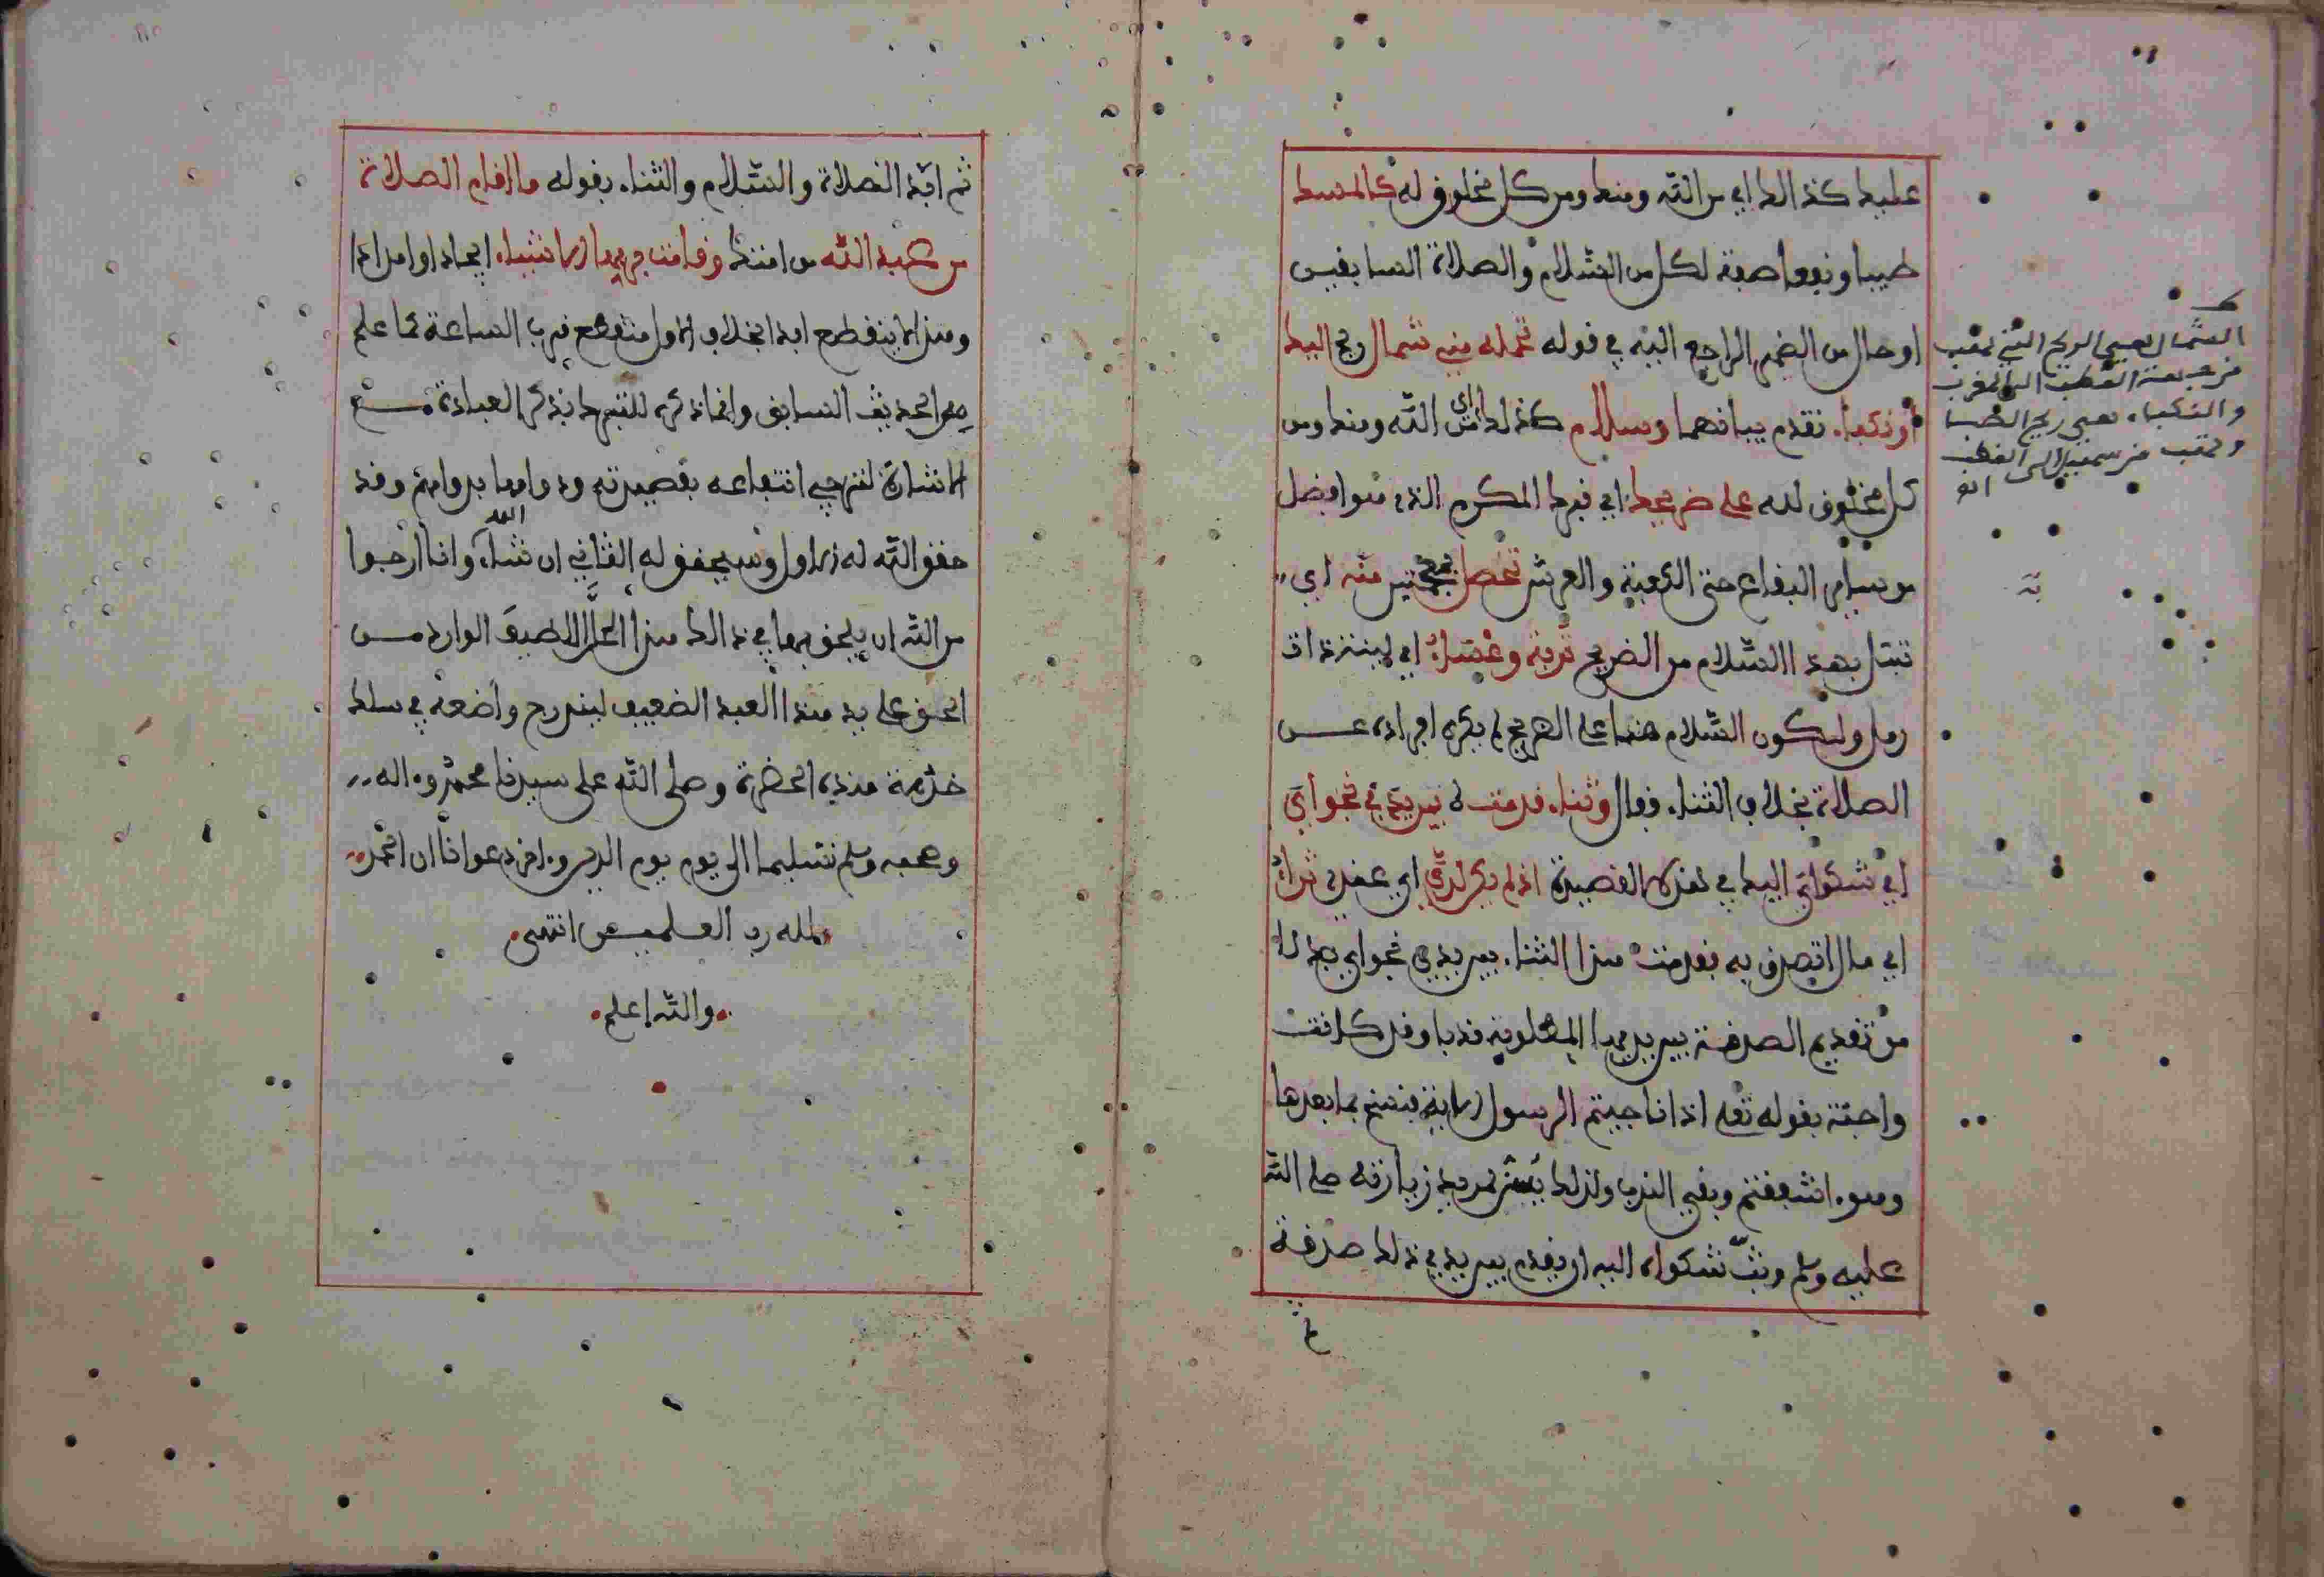 عليك كذالك اي من الله ومنك ومن كل مخلوق له كالمسك
طيبا ونفعا صفة لكل من السلام والصلاة السابقين
او حال من الضمير الراجع اليه في قوله تحمله مني شمال ريح اليك
أو نكباء تقدم بيانهما وسلام كذلك اي من الله ومنك ومن
كل مخلوق لله على ضريحك اي قبرك المكرم الذي هو افضل
من سائر البقاع حتى الكعبة والعرش تخضل منه اي
تبتل بهذا السلام من الضريح تربة وعساء اي لينة ذات
رمل وليكون السلام هنا على الضريح لم يكره افراده عن
الصلاة بخلاف الثناء فقال وثناء قدمت بين يدي نجواي
اي شكواي اليك في هذه القصيدة اذ لم يكن لدي اي عندي ثراء
اي مال اتصدق به فقدمت هذا الثناء بين يدي نجواي بدلا
من تقديم الصدقة بين يديها المطلوبة ندبا وقد كانت
واجبة بقوله تعلى اذا ناجيتم الرسول الاية فنسخ بما بعدها
وهو ءاشفقتم وبقي الندب ولذلك يسن لمريد زيارته صلى الله
عليه وسلم وبث شكواه اليه ان يقدم بين يدي ذلك صدقة
الشمال هي الريح التي تهب
من جهة القطب الى المغرب
والنكباء هي ريح الصبا
وتهب من سهيل الى القطب
انه
ثم
ثم ابد الصلاة والسلام والثناء بقوله ما اقام الصلاة
من عبد الله من امتك وقامت بربها الاشياء ايجادا وامدادا
وهذا لا ينقطع ابدا بخلاف الاول منقطع قرب الساعة كما علم
من الحديث السابق وانما ذكره للتبرك بذكر العبادة مع
الاشارة لترجي انتفاعه بقصيدته ودوامها بدوامه وقد
حقق الله له الاول وسيحقق له الثاني ان شاء الله وانا ارجوا
من الله ان يلحق بها في ذالك هذا الحل اللطيف الوارد من
الحق على يد هذا العبد الضعيف ليندرج واضعه في سلك
خدمة هذه الحضرة وصلى الله على سيدنا محمد وءاله
وصحبه وسلم تسليما الى يوم يوم الدين وءاخر دعوانا ان الحمد
لله رب العلمين انتهى
والله اعلم